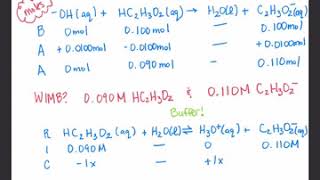 moles
-OH(aq) + HC₂H₃O₂(aq) → H₂O(l) + C₂H₃O₂⁻(aq)
B 0 mol 0.100 mol — 0.100 mol
A +0.0100mol -0.0100mol — +0.0100mol
A 0 mol 0.090 mol — 0.110 mol
WIMB? 0.090M HC₂H₃O₂ & 0.110M C₂H₃O₂⁻
Buffer!
R HC₂H₃O₂(aq) + H₂O(l) ⇌ H₃O⁺(aq) + C₂H₃O₂⁻(aq)
I 0.090M — 0 M 0.110 M
C -1x — +1x